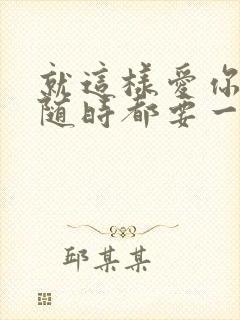 就這樣愛你
隨時都要一
邱某某